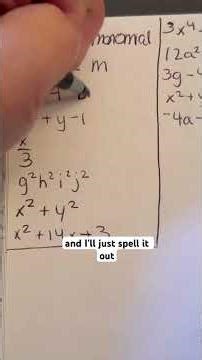 monomial
m
+ y - 1
x/3
g²h²i²j²
x² + y²
x² + 14x + 3
3x⁴
12a²
3g -
x² +
-4a -
and I'll just spell it
out